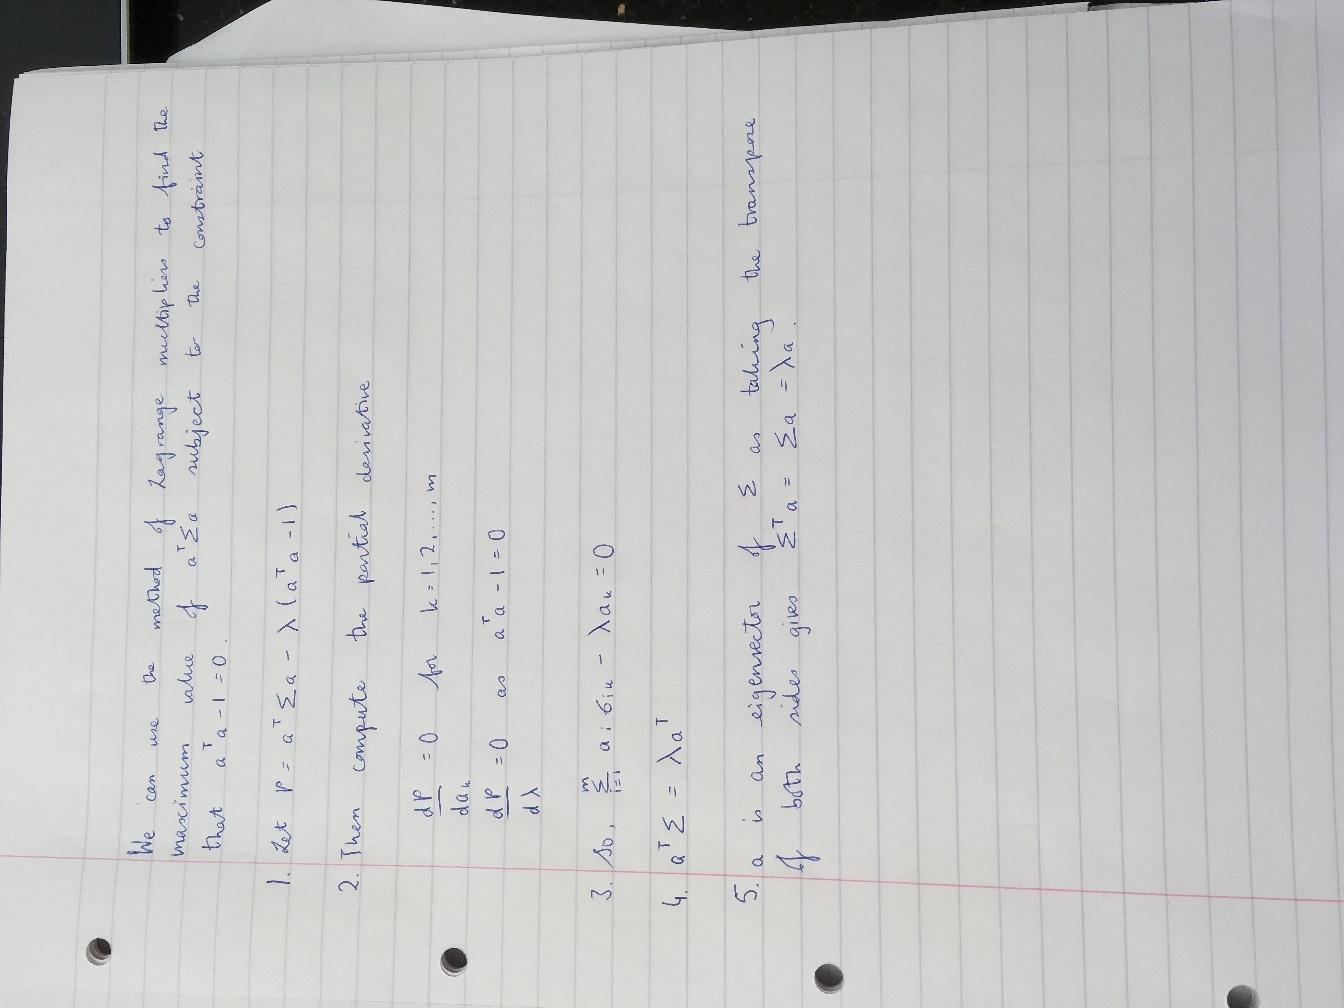 We can use the method of Lagrange multipliers to find the
maximum value of aᵀΣa subject to the constraint
that aᵀa - 1 = 0.
1. Let P = aᵀΣa - λ(aᵀa - 1)
2. Then compute the partial derivative
dP/daₖ = 0 for k = 1, 2, ..., m
dP/dλ = 0 as aᵀa - 1 = 0
3. So, Σᵢ₌₁ᵐ aᵢσᵢₖ - λaₖ = 0
4. aᵀΣ = λaᵀ
5. a is an eigenvector of Σ as taking the transpose
of both sides gives Σᵀa = Σa = λa.